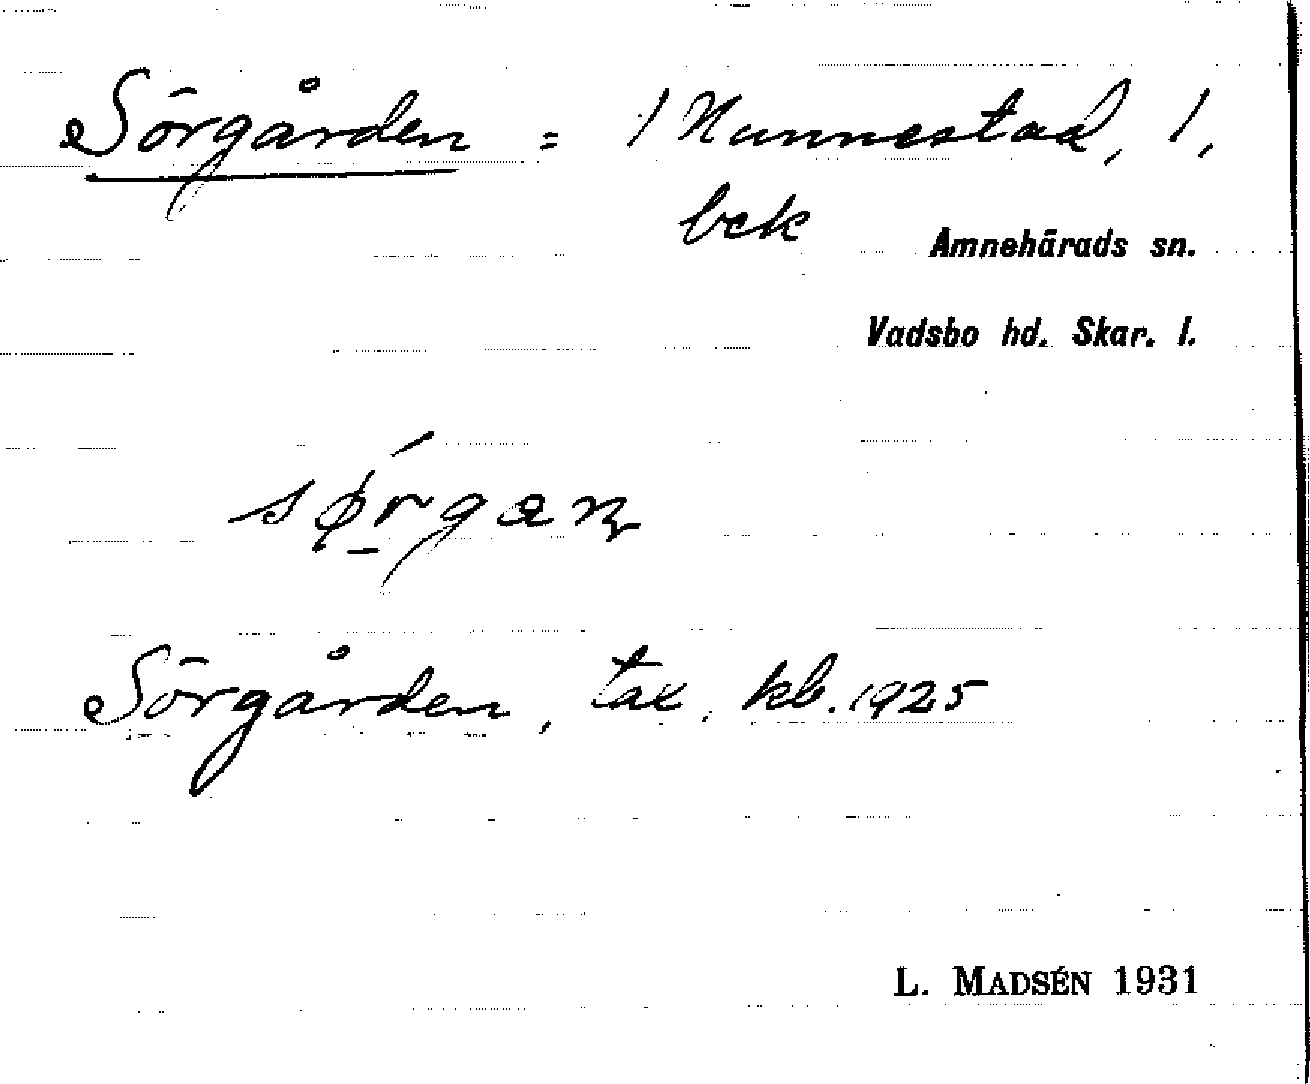 Sörgården = 1 Nunnestad, 1,
bek
Amnehärads sn.
Vadsbo hd. Skar. l.
Sörgården, tax. kb. 1925
L. MADSÉN 1931